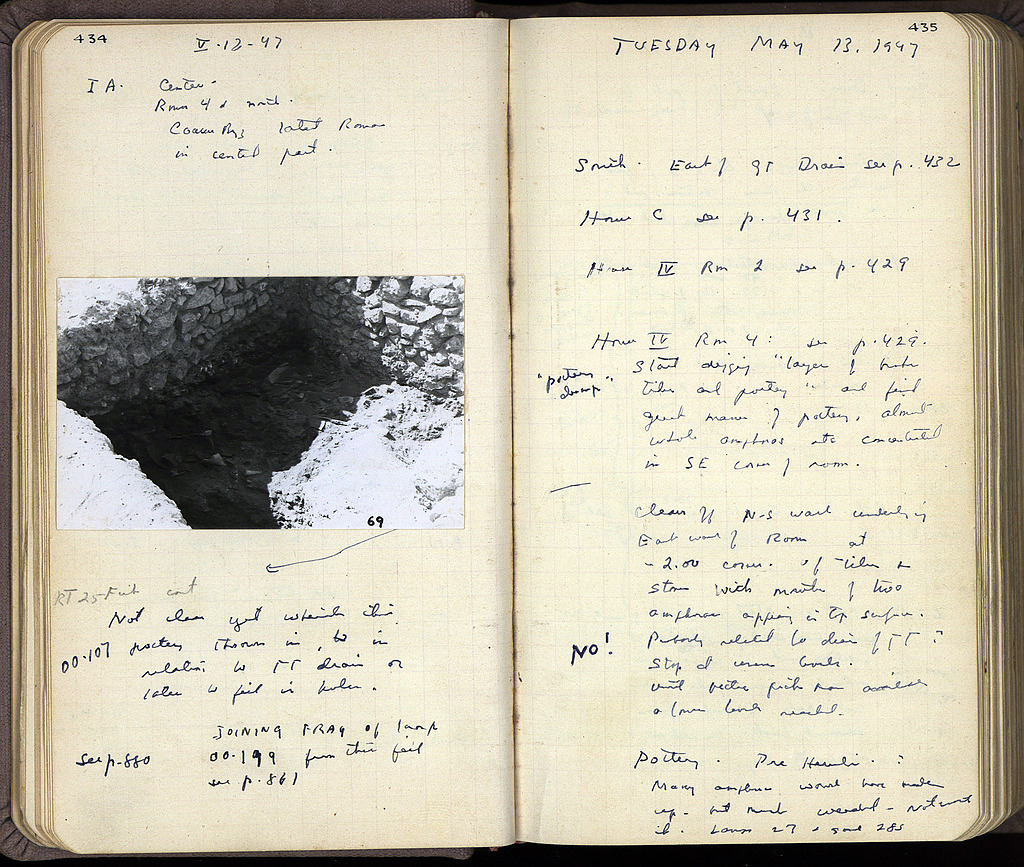 434
V-12-47
I A. Center.
Room 4 & north.
in central part.
69
RT 25-Fill cont
Not clear yet whether this
00.107 pottery thrown in, is in
relation to TT drain or
later to fill in holes.
JOINING FRAG of lamp
see p.880 00.199 from this fill
see p.861
435
TUESDAY MAY 13, 1947
South. East of gt Drain see p. 432
House C see p. 431.
House IV Rm 2 see p. 429
House IV Rm 4: see p. 429.
"potters dump" Start digging "layer of broken
tiles and pottery" and find
great masses of pottery, almost
whole amphoras etc concentrated
in SE corner of room.
Clean off N-S wall underlying
East wall of Room at
-2.00 of tiles &
stone with mouths of two
amphoras appearing in top surface.
NO! Probably related to drain of TT?
Stop at
until now available
a lower level reached.
Pottery. Pre ?
Many amphoras would have made
up - but much - not worth
it. Lamps 27